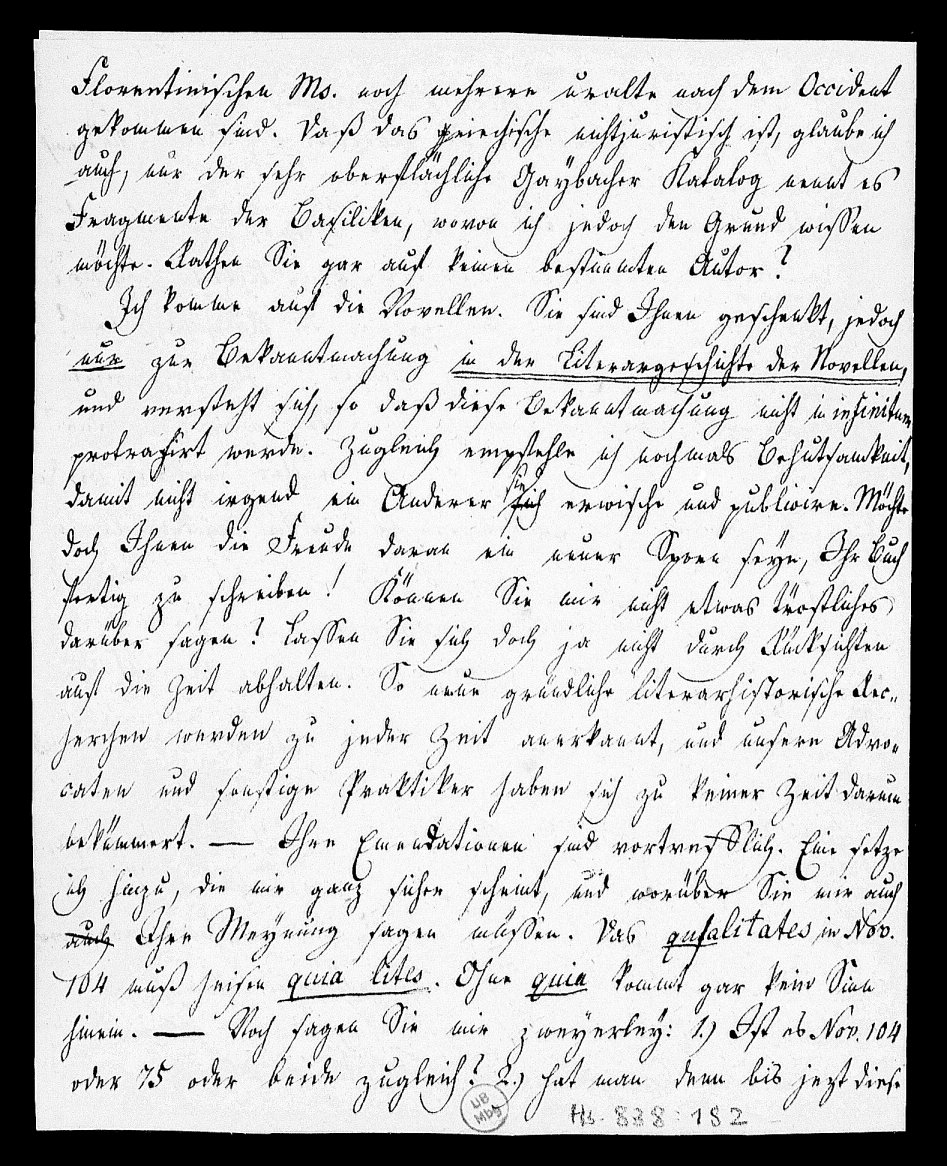 Florentinischen Ms. noch mehrere uralte nach dem Occident
gekommen sind. Daß das griechische nichtjuristisch ist, glaube ich
auch, nur der sehr oberflächliche Gaybacher Katalog nennt es
Fragmente der Basiliken, wovon ich jedoch den Grund wissen
möchte. Rathen Sie gar auf keinen bestimmten Autor?
Ich komme auf die Novellen. Sie sind Ihnen geschenkt, jedoch
nur zur Bekanntmachung in der Literargeschichte der Novellen,
und versteht sich, so daß diese Bekanntmachung nicht in infinitum
protrahirt werde. Zugleich empfehle ich nochmals Behutsamkeit,
damit nicht irgend ein Anderer sie erwische und publicire. Möchte
doch Ihnen die Freude daran ein neuer Sporn seyn, Ihr Buch
fertig zu schreiben! Können Sie mir nicht etwas tröstliches
darüber sagen? Lassen Sie sich doch ja nicht durch Rücksichten
auf die Zeit abhalten. So neue gründliche literarhistorische Rec-
herchen werden zu jeder Zeit anerkannt, und unsere Advo-
caten und sonstige Praktiker haben sich zu keiner Zeit darum
bekümmert. — Ihre Emendationen sind vortrefflich. Eine setze
ich hinzu, die mir ganz sicher scheint, und worüber Sie mir auch
auch Ihre Meynung sagen müssen. Das qualitates in Nov.
104 muß heisen quia lites. Ohne quia kommt gar kein Sinn
hinein. — Noch sagen Sie mir zweyerley: 1.) Ist es Nov. 104
oder 75 oder beide zugleich? 2.) hat man denn bis jezt diese
UB
Mbg
Hs. 838:182